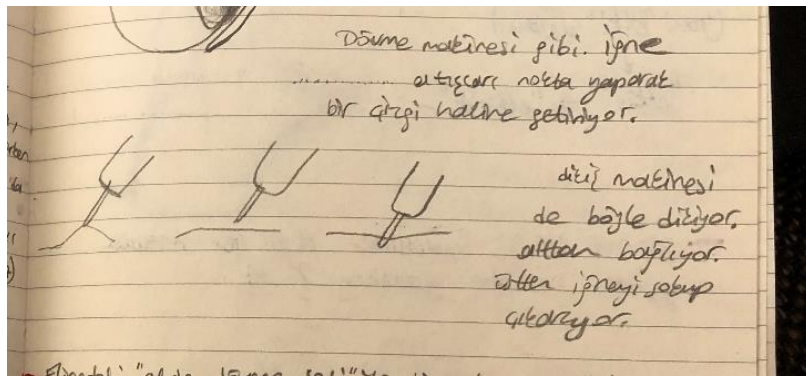 Dövme makinesi gibi. İğne
............... atışları nokta yaparak
bir çizgi haline getiriyor.
dikiş makinesi
de böyle dikiyor.
alttan bağlıyor.
üstten iğneyi sokup
çıkarıyor.